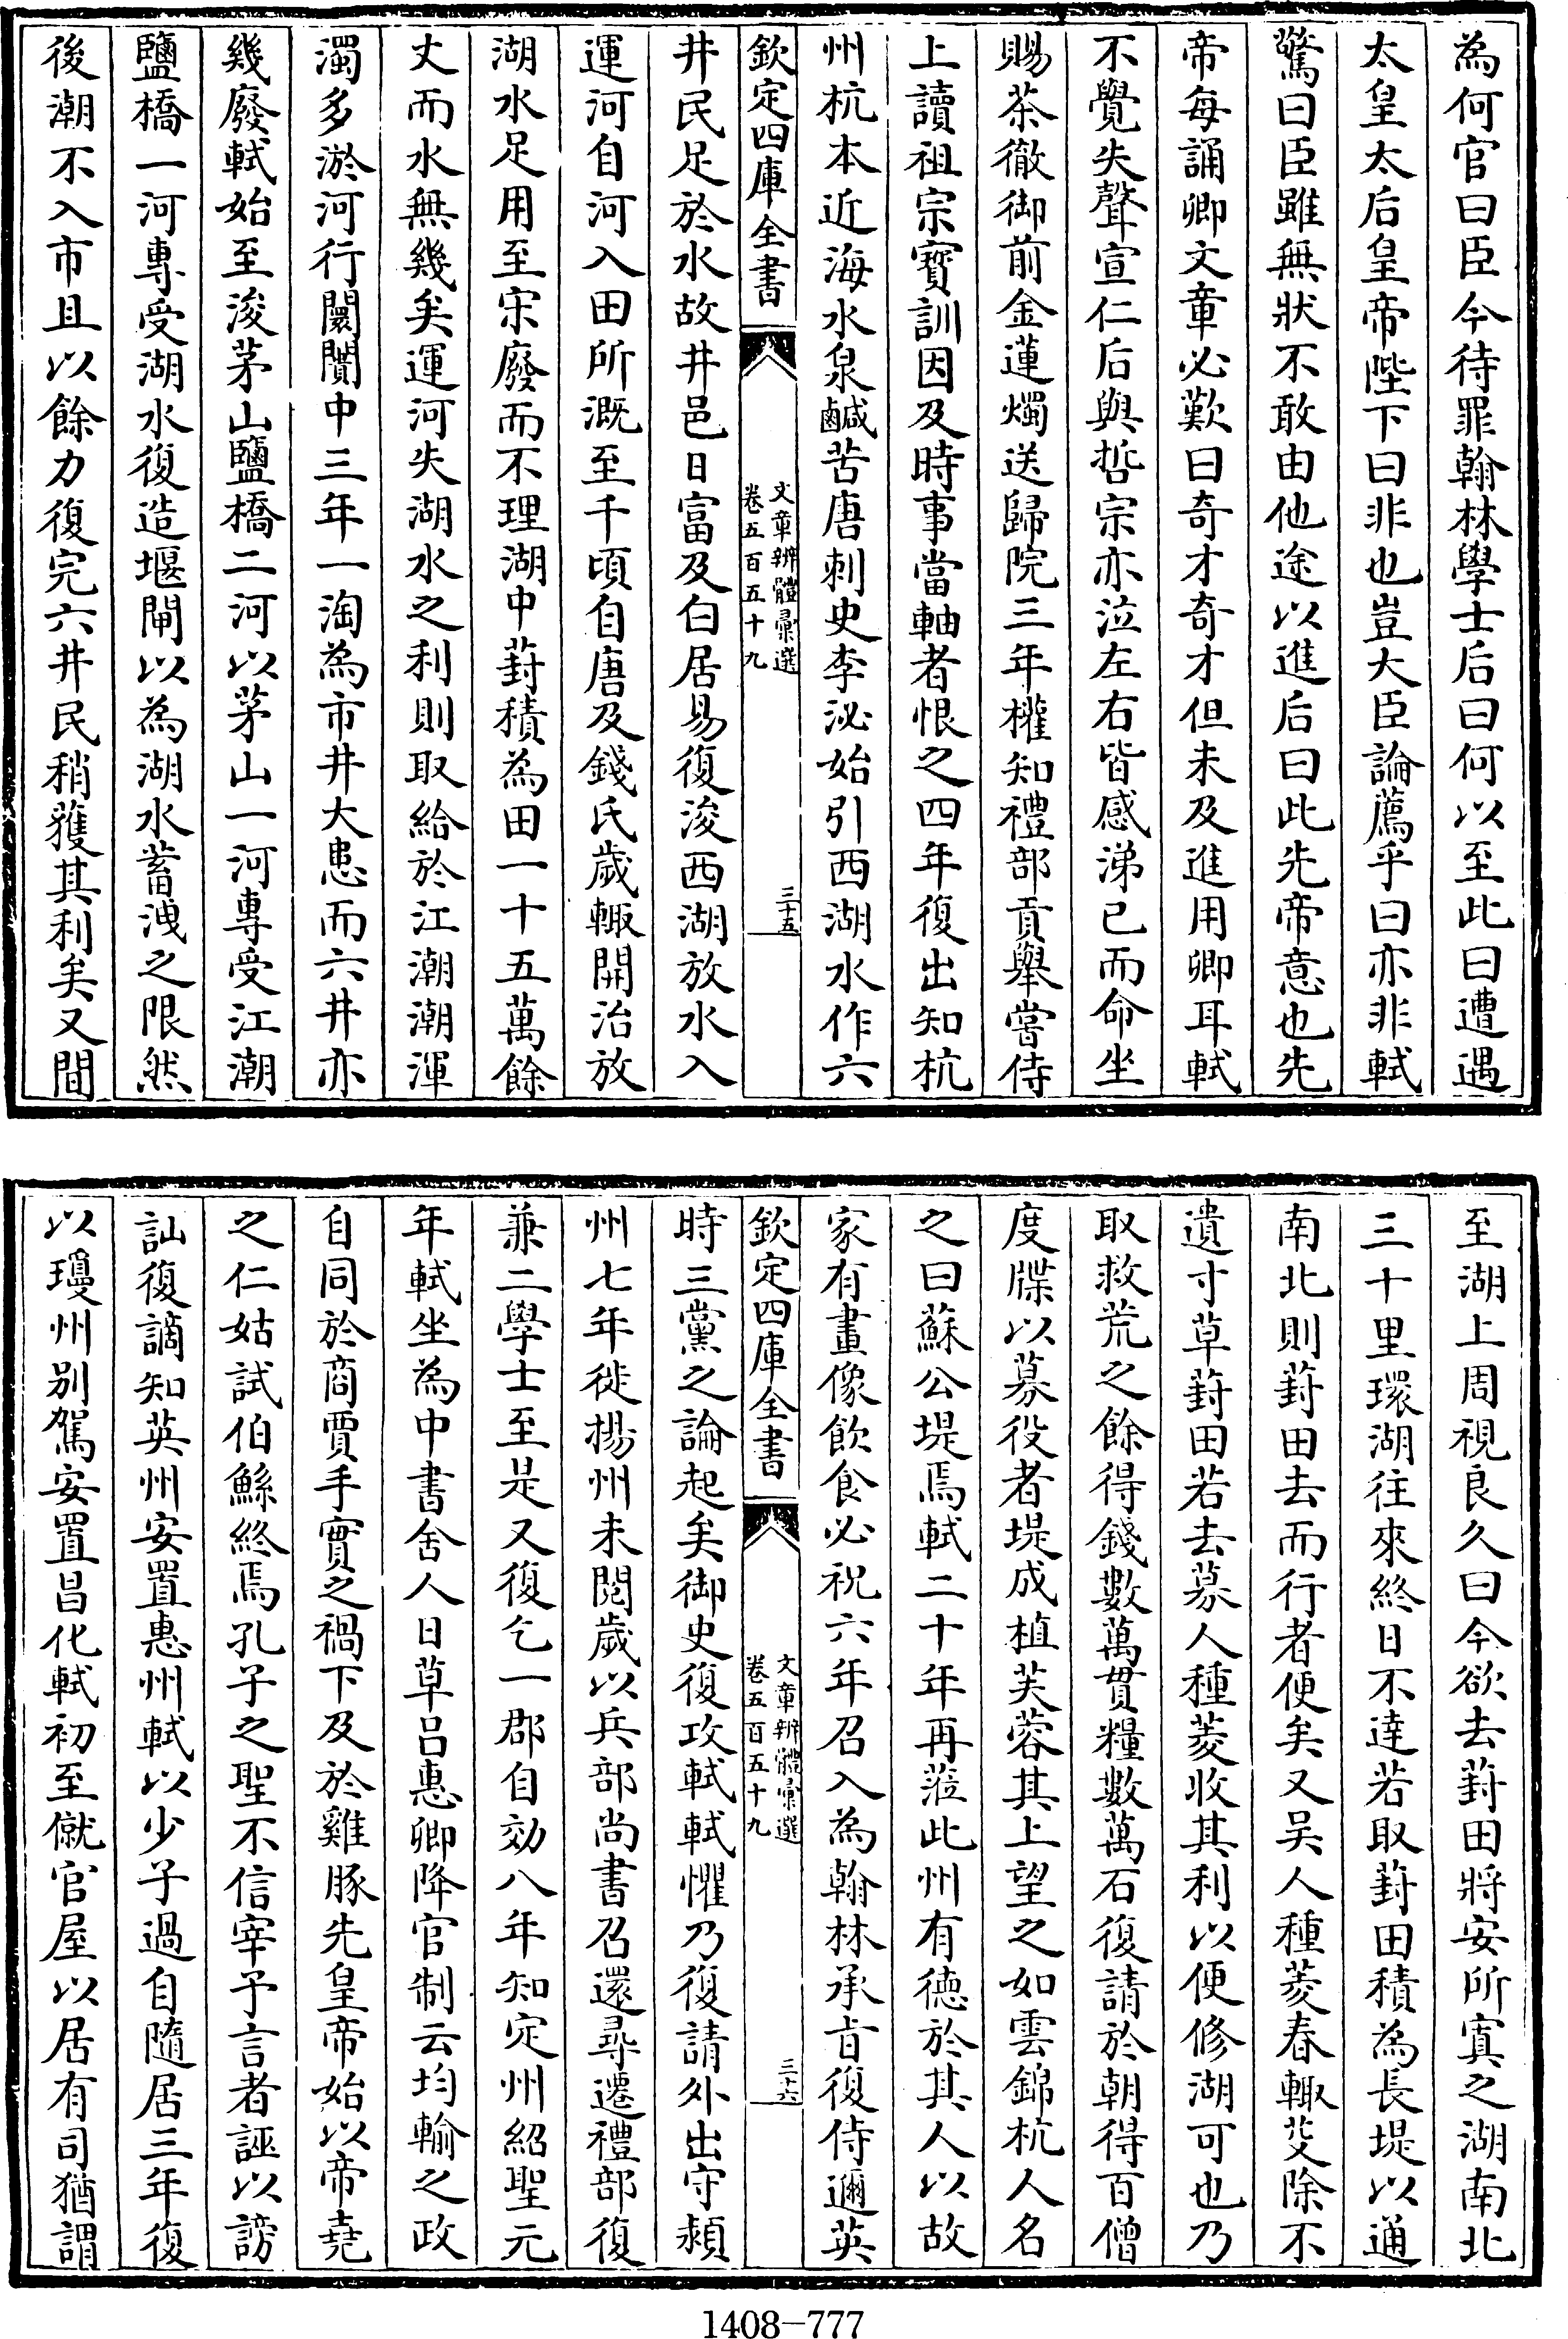 為何官曰臣今待罪翰林學士后曰何以至此曰遭遇
太皇太后皇帝陛下曰非也豈大臣論薦乎曰亦非軾
驚曰臣雖無狀不敢由他途以進后曰此先帝意也先
帝每誦卿文章必歎曰奇才奇才但未及進用卿耳軾
不覺失聲宣仁后與哲宗亦泣左右皆感涕已而命坐
賜茶徹御前金蓮燭送歸院三年權知禮部貢舉嘗侍
上讀祖宗寶訓因及時事當軸者恨之四年復出知杭
州杭本近海水泉鹹苦唐刺史李泌始引西湖水作六
欽定四庫全書
文章辨體彙選
卷五百五十九
三十五
井民足於水故井邑日富及白居易復浚西湖放水入
運河自河入田所溉至千頃自唐及錢氏歲輒開治放
湖水足用至宋廢而不理湖中葑積為田一十五萬餘
丈而水無幾矣運河失湖水之利則取給於江潮潮渾
濁多淤河行闤闠中三年一淘為市井大患而六井亦
幾廢軾始至浚茅山鹽橋二河以茅山一河專受江潮
鹽橋一河專受湖水復造堰閘以為湖水蓄洩之限然
後潮不入市且以餘力復完六井民稍獲其利矣又間
至湖上周視良久曰今欲去葑田將安所寘之湖南北
三十里環湖往來終日不達若取葑田積為長堤以通
南北則葑田去而行者便矣又吴人種菱春輒芟除不
遺寸草葑田若去募人種菱收其利以便修湖可也乃
取救荒之餘得錢數萬貫糧數萬石復請於朝得百僧
度牒以募役者堤成植芙蓉其上望之如雲錦杭人名
之曰蘇公堤焉軾二十年再蒞此州有德於其人以故
家有畫像飲食必祝六年召入為翰林承旨復侍邇英
欽定四庫全書
文章辨體彙選
卷五百五十九
三十六
時三黨之論起矣御史復攻軾軾懼乃復請外出守潁
州七年徙揚州未閱歲以兵部尚書召還尋遷禮部復
兼二學士至是又復乞一郡自効八年知定州紹聖元
年軾坐為中書舍人日草吕惠卿降官制云均輸之政
自同於商賈手實之禍下及於雞豚先皇帝始以帝堯
之仁姑試伯鯀終焉孔子之聖不信宰予言者誣以謗
訕復謫知英州安置惠州軾以少子過自隨居三年復
以瓊州别駕安置昌化軾初至僦官屋以居有司猶謂
1408-777